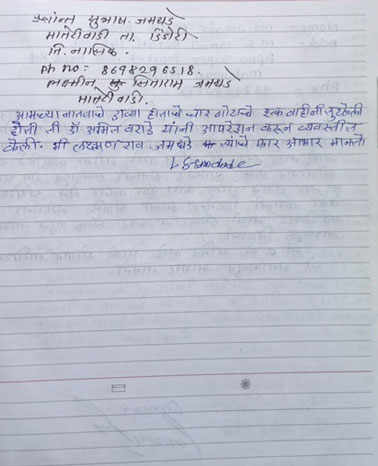 प्रशांत सुभाष जमधडे
मातेरेवाडी ता. दिंडोरी
जि. नाशिक.
ph no= 8698296518.
लक्ष्मण सिताराम जमधडे
मातेरेवाडी.
आमच्या नातवाचे डाव्या हाताचे चार बोटाचे रक्त वाहीनी तुटलेली
होती ती डॉ अमित वराडे यांनी आपरेशन करून व्यवस्तीत
केली. मी लक्ष्मण राव जमधडे त्यांचे फार आभार मानतो